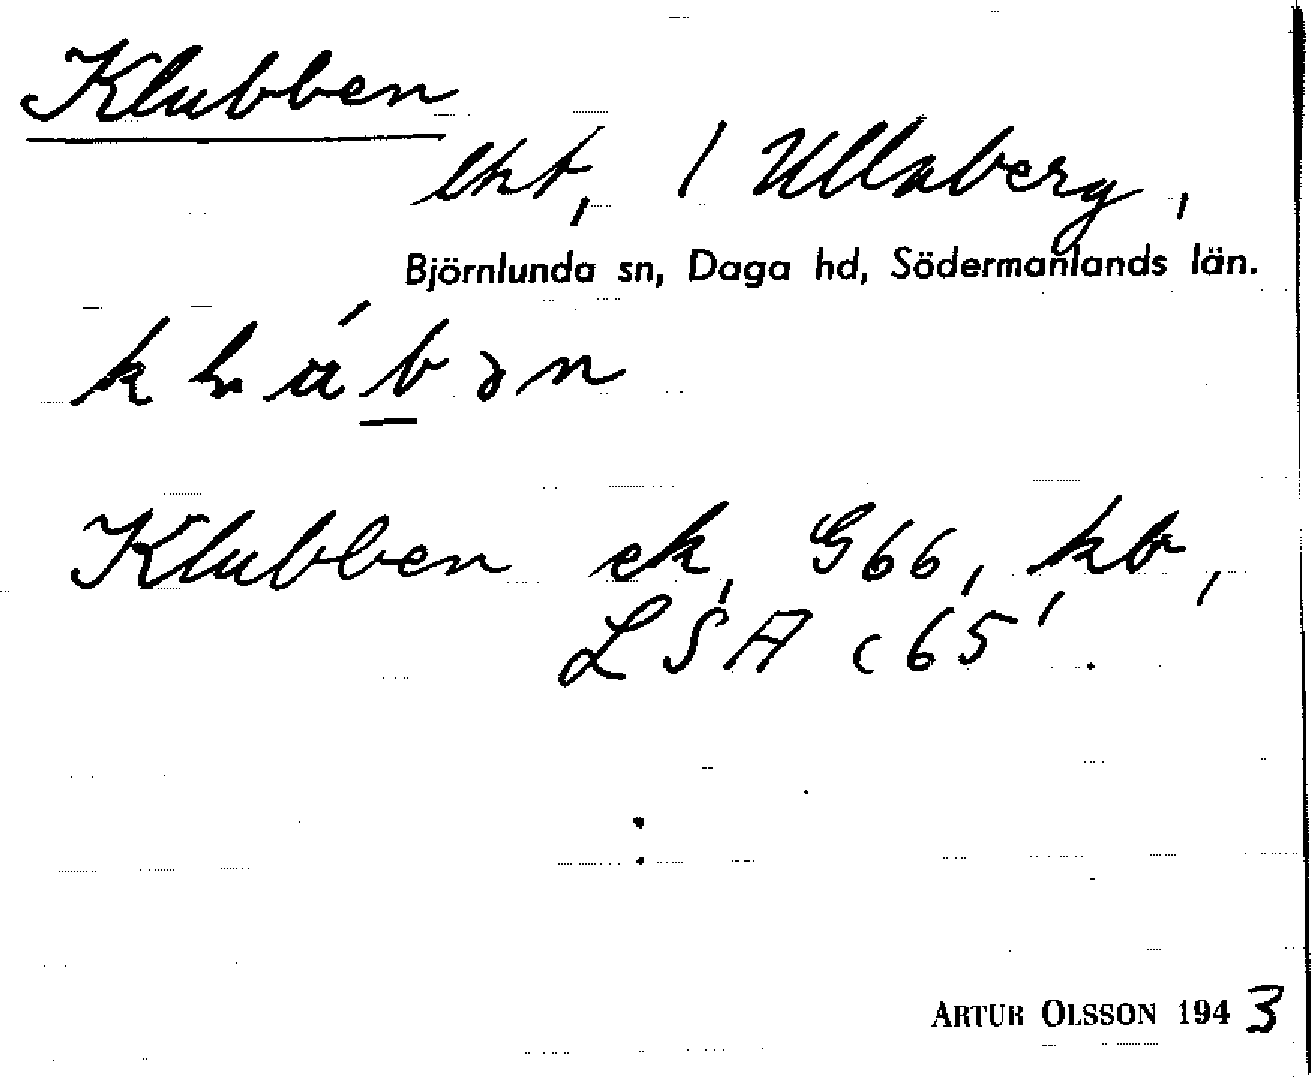 Klubben
lht, / Ullaberg,
Björnlunda sn, Daga hd, Södermanlands län.
Klubben ek, G66, kb,
LSA c 65.
ARTUR OLSSON 1943